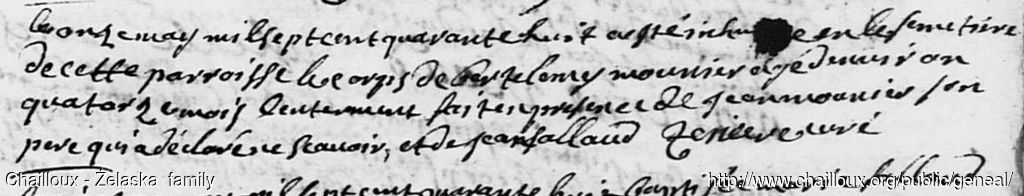 le onze may mil sept cent quarante huit a esté inhu e en le semetiere
de cette parroisse le corps de bertelemy mounier agé denuiron
quatorze mois lenterement fait en presence de jean mounier son
pere qui a déclaré ne scauoir, et de jean fallaud curé
mil sept cent quarante huit
Chailloux - Zelaska family
http://www.chailloux.org/public/geneal/